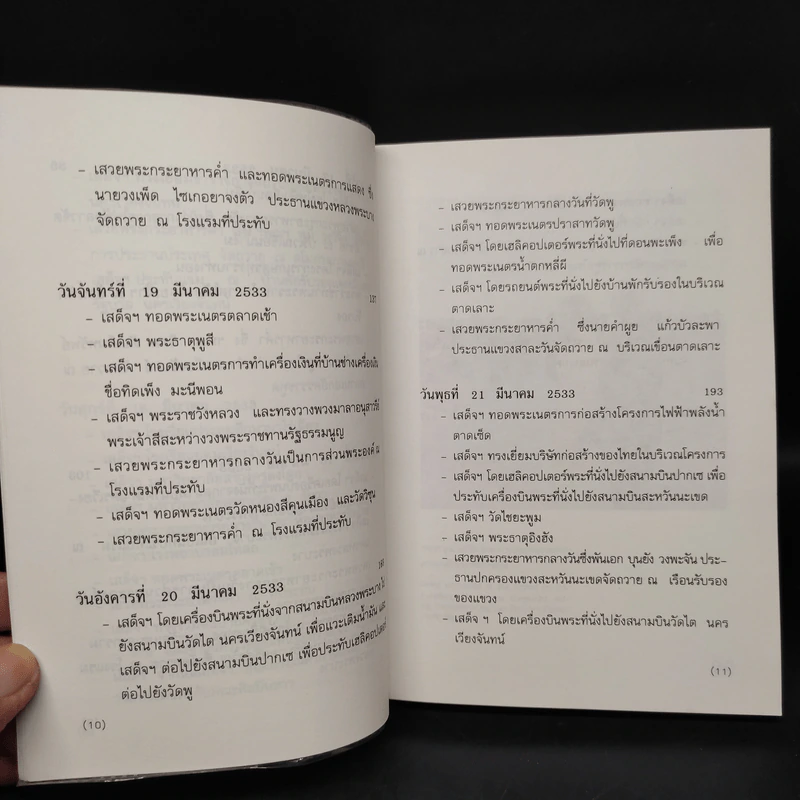 - เสวยพระกระยาหารค่ำ และทอดพระเนตรการแสดง ซึ่ง
นายวงเพ็ด ไซเกอยาจงตัว ประธานแขวงหลวงพระบาง
จัดถวาย ณ โรงแรมที่ประทับ
วันจันทร์ที่ 19 มีนาคม 2533 137
- เสด็จฯ ทอดพระเนตรตลาดเช้า
- เสด็จฯ พระธาตุพูสี
- เสด็จฯ ทอดพระเนตรการทำเครื่องเงินที่บ้านช่างเครื่องเงิน
ชื่อทิดเพ็ง มะนีพอน
- เสด็จฯ พระราชวังหลวง และทรงวางพวงมาลาอนุสาวรีย์
พระเจ้าสีสะหว่างวงพระราชทานรัฐธรรมนูญ
- เสวยพระกระยาหารกลางวันเป็นการส่วนพระองค์ ณ
โรงแรมที่ประทับ
- เสด็จฯ ทอดพระเนตรวัดหนองสีคุนเมือง และวัดวิชุน
- เสวยพระกระยาหารค่ำ ณ โรงแรมที่ประทับ
วันอังคารที่ 20 มีนาคม 2533
- เสด็จฯ โดยเครื่องบินพระที่นั่งจากสนามบินหลวงพระบาง ไป
ยังสนามบินวัดไต นครเวียงจันทน์ เพื่อแวะเติมน้ำมัน และ
เสด็จฯ ต่อไปยังสนามบินปากเซ เพื่อประทับเฮลิคอปเตอร์
ต่อไปยังวัดพู
(10)
- เสวยพระกระยาหารกลางวันที่วัดพู
- เสด็จฯ ทอดพระเนตรปราสาทวัดพู
- เสด็จฯ โดยเฮลิคอปเตอร์พระที่นั่งไปที่ดอนพะเพ็ง เพื่อ
ทอดพระเนตรน้ำตกหลี่ผี
- เสด็จฯ โดยรถยนต์พระที่นั่งไปยังบ้านพักรับรองในบริเวณ
ตาดเลาะ
- เสวยพระกระยาหารค่ำ ซึ่งนายคำผูย แก้วบัวละพา
ประธานแขวงสาละวันจัดถวาย ณ บริเวณเขื่อนตาดเลาะ
วันพุธที่ 21 มีนาคม 2533 193
- เสด็จฯ ทอดพระเนตรการก่อสร้างโครงการไฟฟ้าพลังน้ำ
ตาดเซ็ด
- เสด็จฯ ทรงเยี่ยมบริษัทก่อสร้างของไทยในบริเวณโครงการ
- เสด็จฯ โดยเฮลิคอปเตอร์พระที่นั่งไปยังสนามบินปากเซ เพื่อ
ประทับเครื่องบินพระที่นั่งไปยังสนามบินสะหวันนะเขด
- เสด็จฯ วัดไชยะพูม
- เสด็จฯ พระธาตุอิงฮัง
- เสวยพระกระยาหารกลางวันซึ่งพันเอก บุนยัง วงพะจัน ประ-
ธานปกครองแขวงสะหวันนะเขดจัดถวาย ณ เรือนรับรอง
ของแขวง
- เสด็จ ฯ โดยเครื่องบินพระที่นั่งไปยังสนามบินวัดไต นคร
เวียงจันทน์
(11)